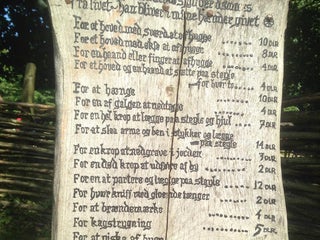 For et hoved med sværd at afhugge ........ 10 DLR
For et hoved med økse at afhugge ....... 8 DLR
For en haand eller finger at afhugge ....... 4 DLR
For et hoved og en haand at sætte paa stegle
for hvert ..... 4 DLR
For at hænge ........ 10 DLR
For en af galgen at nedtage ........ 4 DLR
For en hel krop at lægge paa stegle og hjul .... 7 DLR
For at slaa arme og ben i stykker og lægge
paa stegle ........ 14 DLR
For en krop at nedgrave i jorden ........ 3 DLR
For en død krop at udføre af by ........ 2 DLR
For en at partere og lægge paa stegle ..... 12 DLR
For hver kniff med gloende tænger ....... 2 DLR
For at brændemærke ........ 4 DLR
For kagstrygning ........ 5 DLR
For at piske af